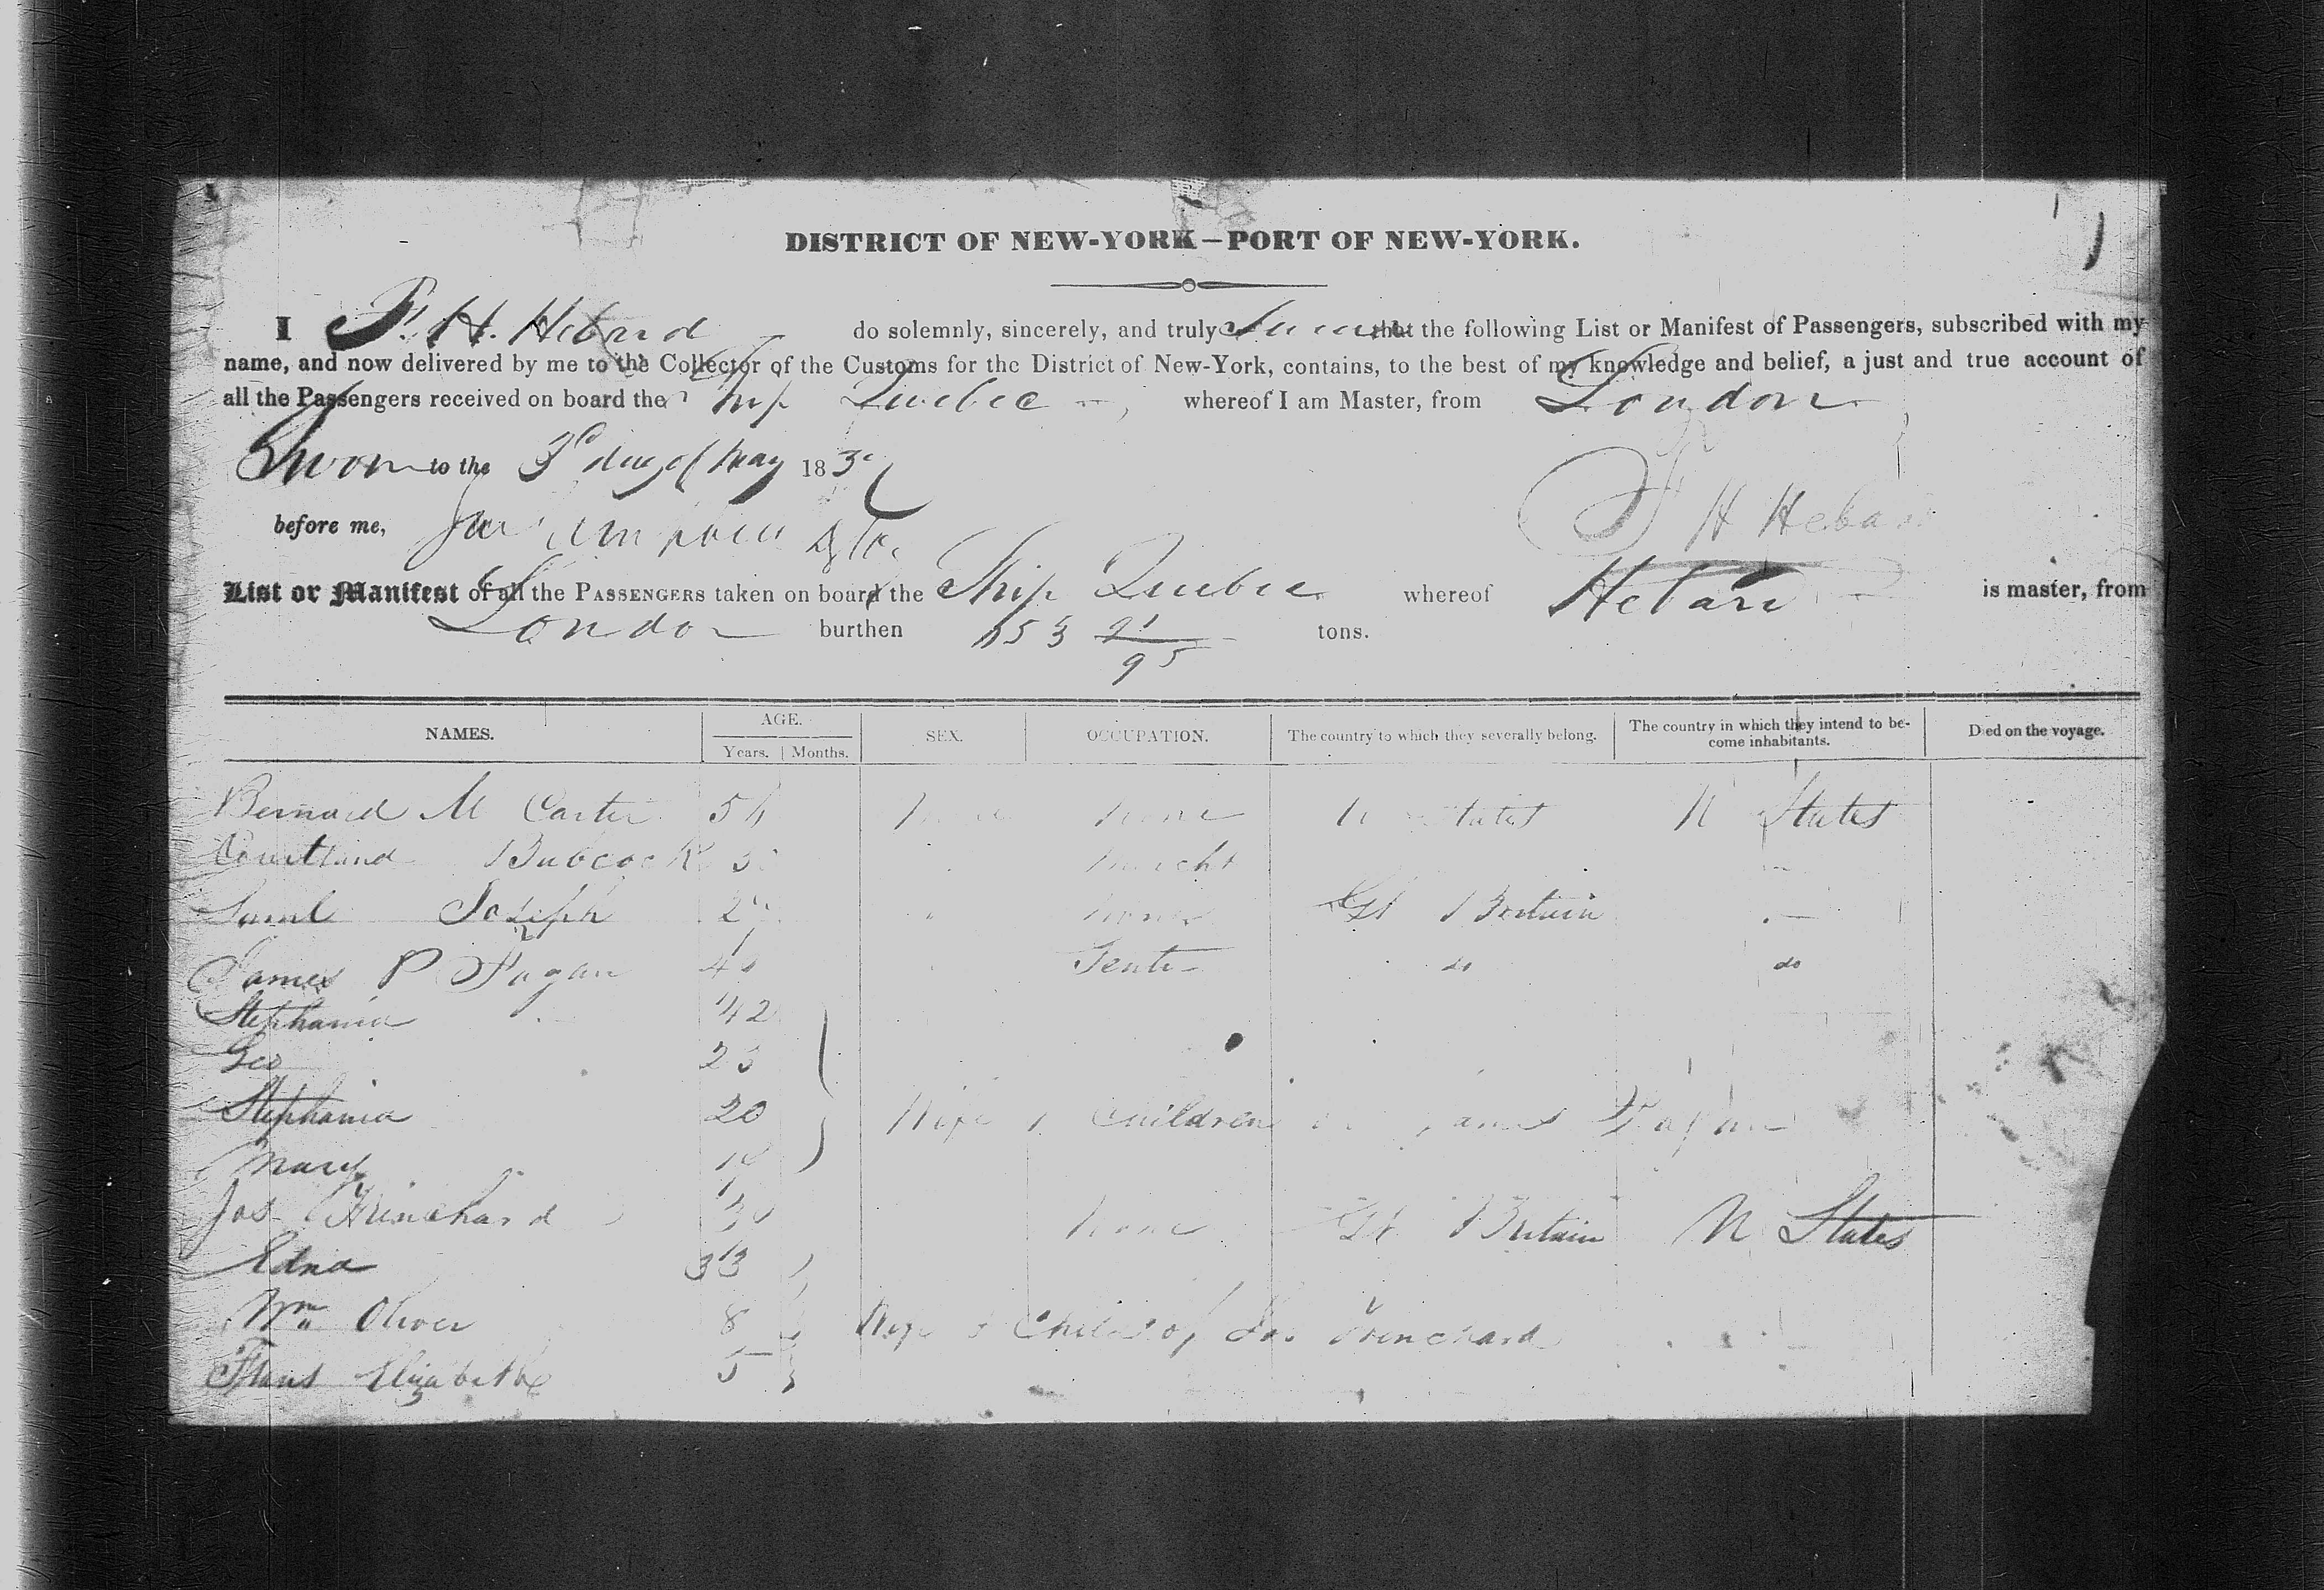 DISTRICT OF NEW-YORK—PORT OF NEW-YORK.
I F. H. Hebard do solemnly, sincerely, and truly that the following List or Manifest of Passengers, subscribed with my
name, and now delivered by me to the Collector of the Customs for the District of New-York, contains, to the best of my knowledge and belief, a just and true account of
all the Passengers received on board the Ship Quebec whereof I am Master, from London
Sworn to the 3d day of May 18
before me,
F H Hebard
List or Manifest of all the PASSENGERS taken on board the Ship Quebec whereof Hebard is master, from
London burthen 653 21/95 tons.
NAMES. AGE. Years. Months. SEX. OCCUPATION. The country to which they severally belong. The country in which they intend to become inhabitants. Died on the voyage.
Bernard M Carter 54 none U States U States
Courtland Babcock Mercht
Saml Joseph none Gt Britain
James P Fagan Gent do do
Stephania 42
Geo 23
Stephania 20 Wife & Children James Fagan
Mary
Jos Trinchard 30 none Gt Britain U States
Edna 33
Wm Oliver 8 Wife & Child of Jos Trinchard
Elizabeth 5